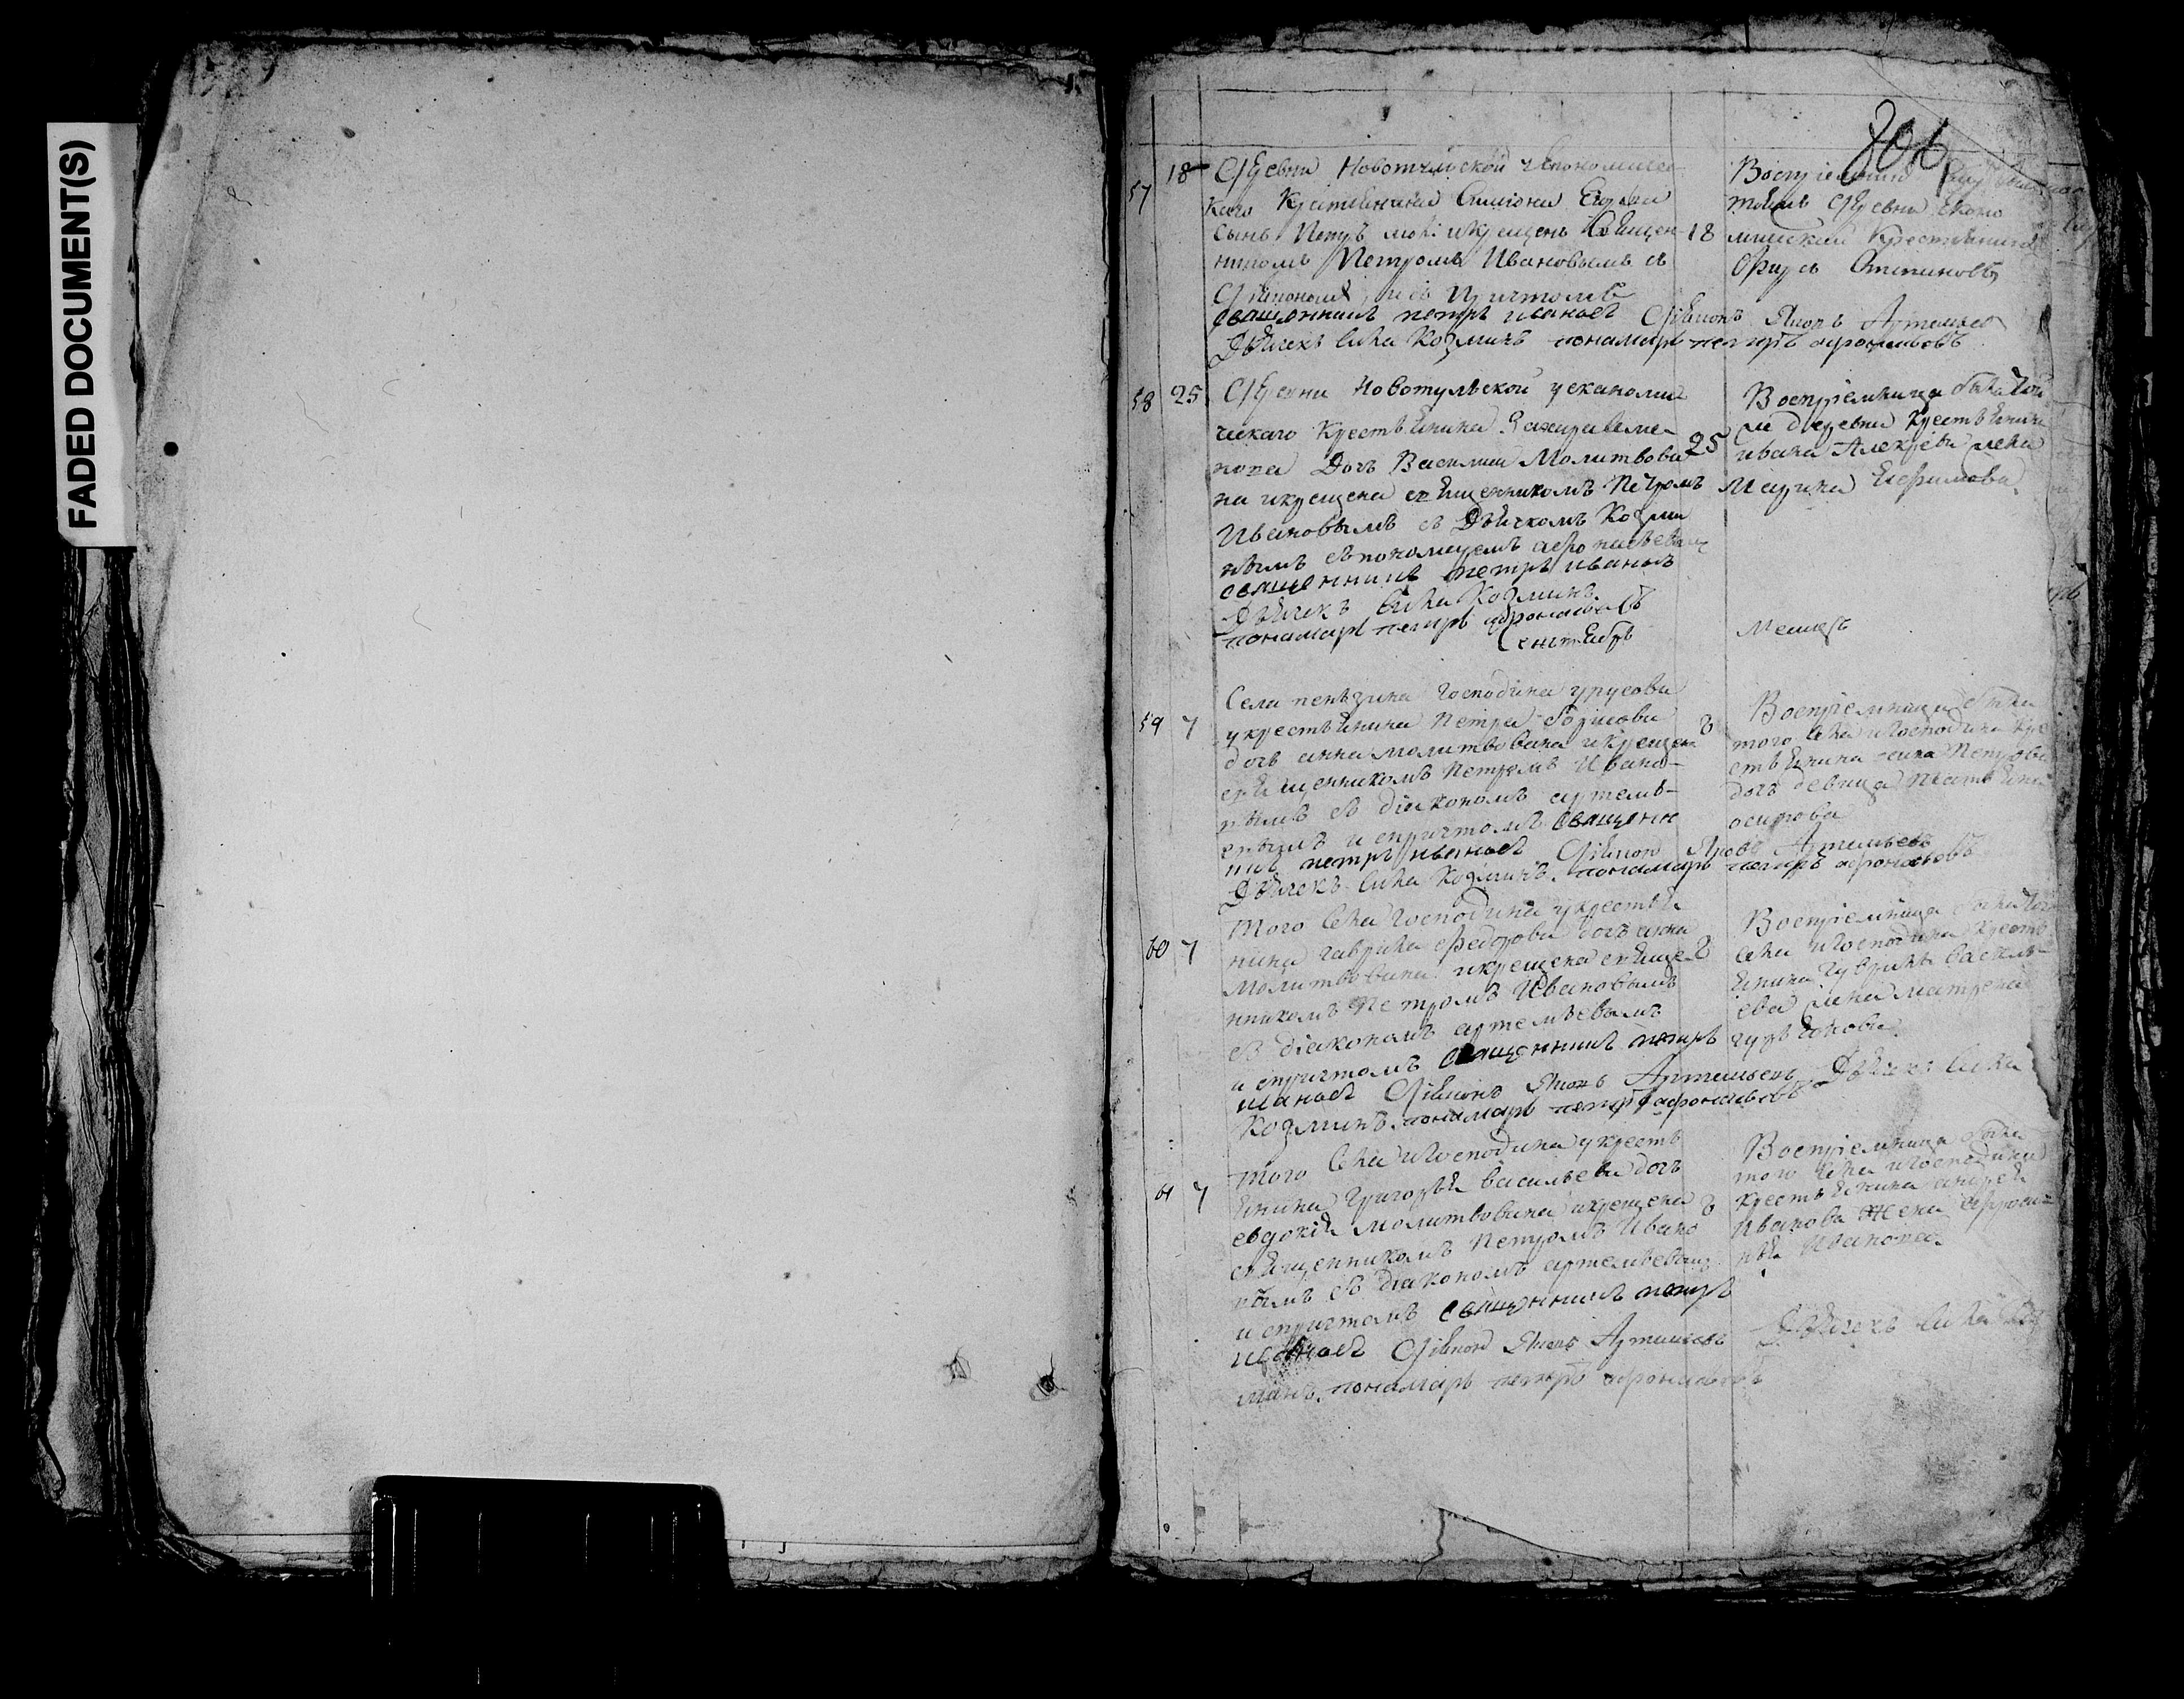 FADED DOCUMENT(S)
806
57 18 деревни Новотульской у економичес
каго крестьянина Симиона Егорова
сынъ Петръ мол: и крещенъ священ
никомъ Петромъ Ивановымъ съ
діякономъ, и съ причтомъ
священникъ петръ ивановъ Діяконъ Яковъ Артемьевъ
Дьячекъ Сила Козминъ понамарь петръ афонасьевъ
18
Воспріемникъ
тойже деревни еконо
мическій крестьянинъ
Степановъ
58 25 деревни Новотульской у економи
ческаго крестьянина
дочь Василиса Молитвова
на и крещена священникомъ Петромъ
Ивановымъ съ Дьячкомъ Козми
нымъ съ пономаремъ афонасьевымъ
священникъ петръ ивановъ
Дьячекъ Сила Козминъ
понамарь петръ афонасьевъ
25
Воспріемница была той
же деревни крестьянина
ивана Алексеева жена
Марина Ефимова
Сентябрь Месяцъ
59 7 Села пенъзина Господина урусова
у крестьянина Петра борисова
дочь анна молитвована и крещена
священникомъ Петромъ Ивано-
вымъ съ діякономъ артемь-
евымъ и спричтомъ священни
никъ петръ ивановъ Діяконъ Яковъ Артемьевъ
Дьячекъ Сила Козминъ понамарь петръ афонасьевъ
8
Воспріемница была
того села и господина кре
стьянина Петрова
дочь девица
осипова
60 7 того села Господина у крестья
нина гаврила федорова дочь анна
молитвована и крещена священ
нникомъ Петромъ Ивановымъ
съ діякономъ артемьевымъ
и спричтомъ священникъ петръ
ивановъ Діяконъ Яковъ Артемьевъ Дьячекъ Сила
Козминъ понамарь петръ афонасьевъ
8
Воспріемница была того
села и господина кресть
янина гаврилы василь-
ева жена матрена
61 7 того села и Господина у кресть
янина Григорья васильева дочь
евдокія молитвована и крещена
священникомъ Петромъ Ивано
вымъ съ діякономъ артемьевымъ
и спричтомъ священникъ петръ
ивановъ Діяконъ Яковъ Артемьевъ Дьячекъ Сила Коз
минъ понамарь петръ афонасьевъ
8
Воспріемница была
того села и господина
крестьянина андрея
Иванова жена афроси-
нья Иванова